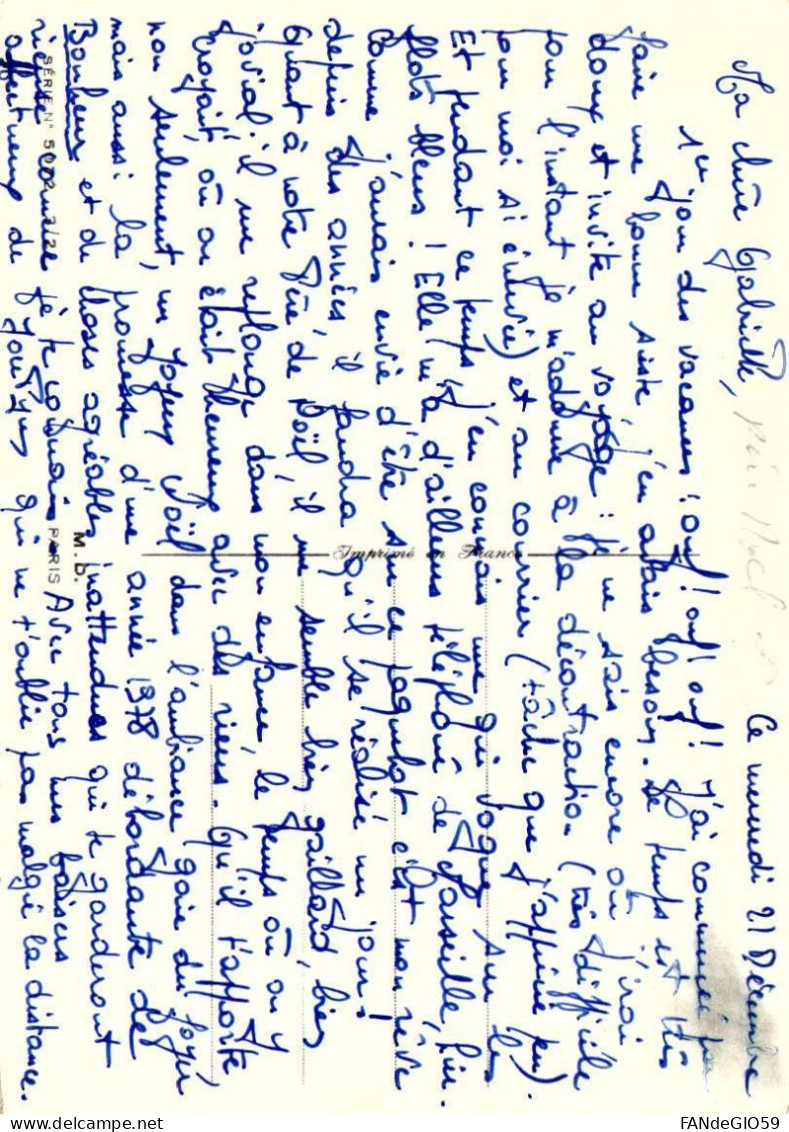 Ce mercredi 21 Décembre
Ma chère Gabrielle,
1er jour des vacances ! ouf ! ouf ! ouf ! J'ai commencé par
faire une bonne sieste, j'en avais besoin. Le temps est très
doux et invite au voyage : je ne sais encore où j'irai
pour l'instant je m'adonne à la décontraction (très difficile
pour moi si énervée) et au courrier (tâche que j'apprécie peu).
Et pendant ce temps j'en connais une qui vogue sur les
flots bleus ! Elle m'a d'ailleurs téléphoné de Marseille, hier.
Comme j'aurais envie d'être sur ce paquebot c'est mon rêve
depuis des années, il faudra qu'il se réalise un jour !
Quant à notre Père de Noël, il me semble bien gaillard, bien
jovial : il me replonge dans mon enfance le temps où on y
croyait, où on était heureux avec des riens. Qu'il t'apporte
non seulement, un Joyeux Noël dans l'ambiance gaie du foyer
mais aussi la promesse d'une année 1978 débordante de
Bonheur et de choses agréables inattendues qui te garderont
rieuse comme je te connais Avec tous mes baisers
affectueux de qui ne t'oublie pas malgré la distance.
Imprimé en France
M. D.
SÉRIE N° PARIS
FANdeGIO59